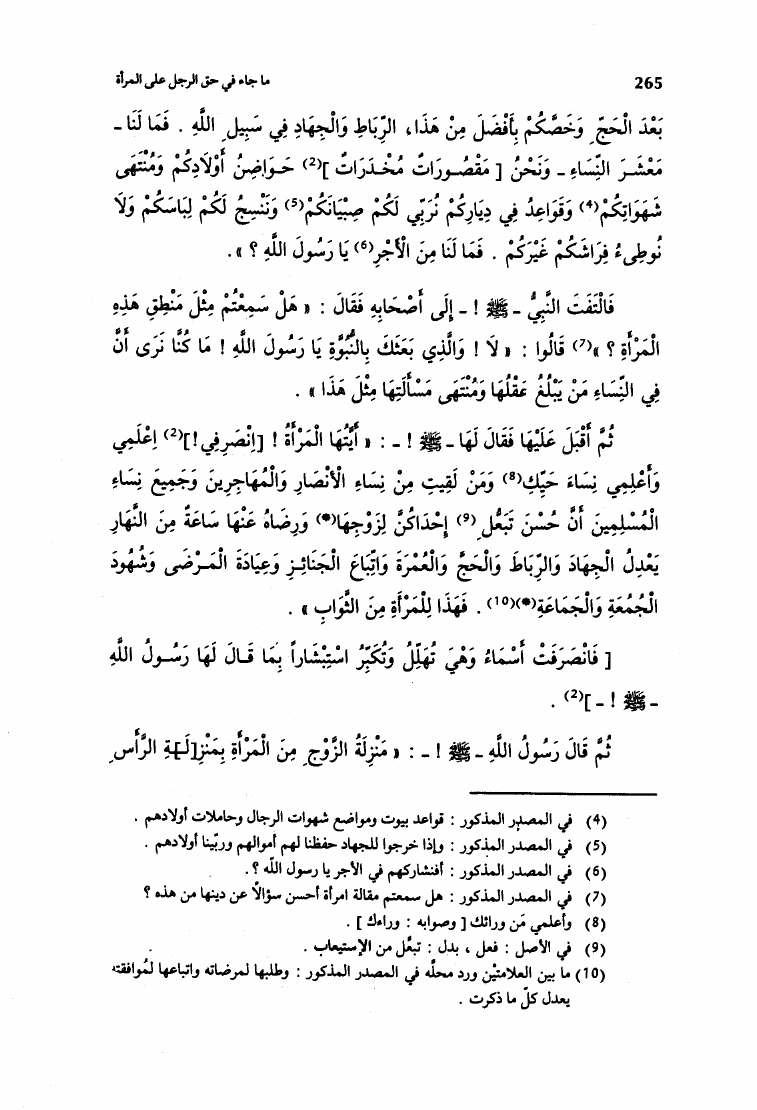 265 ما جاء في حق الرجل على المرأة
بَعْدَ الْحَجِّ وَخَصَّكُمْ بِأَفْضَلَ مِنْ هَذَا، الرِّبَاطِ وَالْجِهَادِ فِي سَبِيلِ اللَّهِ . فَمَا لَنَا -
مَعْشَرَ النِّسَاءِ - وَنَحْنُ [ مَقْصُورَاتٌ مُخْدَرَاتٌ ]⁽²⁾ حَوَاضِنُ أَوْلَادِكُمْ وَمُنْتَهَى
شَهَوَاتِكُمْ⁽⁴⁾ وَقَوَاعِدُ فِي دِيَارِكُمْ نُرَبِّي لَكُمْ صِبْيَانَكُمْ⁽⁵⁾ وَنَنْسِجُ لَكُمْ لِبَاسَكُمْ وَلَا
نُوطِىءُ فِرَاشَكُمْ غَيْرَكُمْ . فَمَا لَنَا مِنَ الْأَجْرِ⁽⁶⁾ يَا رَسُولَ اللَّهِ ؟ » .
فَالْتَفَتَ النَّبِيُّ - ﷺ ! - إِلَى أَصْحَابِهِ فَقَالَ : « هَلْ سَمِعْتُمْ مِثْلَ مَنْطِقِ هَذِهِ
الْمَرْأَةِ ؟ »⁽⁷⁾ قَالُوا : « لَا ! وَالَّذِي بَعَثَكَ بِالنُّبُوَّةِ يَا رَسُولَ اللَّهِ ! مَا كُنَّا نَرَى أَنَّ
فِي النِّسَاءِ مَنْ يَبْلُغُ عَقْلُهَا وَمُنْتَهَى مَسْأَلَتِهَا مِثْلَ هَذَا » .
ثُمَّ أَقْبَلَ عَلَيْهَا فَقَالَ لَهَا - ﷺ ! - : « أَيَّتُهَا الْمَرْأَةُ ! [اِنْصَرِفِي!]⁽²⁾ اِعْلَمِي
وَأَعْلِمِي نِسَاءَ حَيِّكِ⁽⁸⁾ وَمَنْ لَقِيتِ مِنْ نِسَاءِ الْأَنْصَارِ وَالْمُهَاجِرِينَ وَجَمِيعِ نِسَاءِ
الْمُسْلِمِينَ أَنَّ حُسْنَ تَبَعُّلِ⁽⁹⁾ إِحْدَاكُنَّ لِزَوْجِهَا⁽*⁾ وَرِضَاهُ عَنْهَا سَاعَةً مِنَ النَّهَارِ
يَعْدِلُ الْجِهَادَ وَالرِّبَاطَ وَالْحَجَّ وَالْعُمْرَةَ وَاتِّبَاعَ الْجَنَائِزِ وَعِيَادَةَ الْمَرْضَى وَشُهُودَ
الْجُمُعَةِ وَالْجَمَاعَةِ⁽*⁾⁽¹⁰⁾ . فَهَذَا لِلْمَرْأَةِ مِنَ الثَّوَابِ » .
[ فَانْصَرَفَتْ أَسْمَاءُ وَهِيَ تُهَلِّلُ وَتُكَبِّرُ اسْتِبْشَاراً بِمَا قَالَ لَهَا رَسُولُ اللَّهِ
- ﷺ ! - ]⁽²⁾ .
ثُمَّ قَالَ رَسُولُ اللَّهِ - ﷺ ! - : « مَنْزِلَةُ الزَّوْجِ مِنَ الْمَرْأَةِ بِمَنْزِ[لَـ]ـةِ الرَّأْسِ
(4) في المصدر المذكور : قواعد بيوت ومواضع شهوات الرجال وحاملات أولادهم .
(5) في المصدر المذكور : وإذا خرجوا للجهاد حفظنا لهم أموالهم وربّينا أولادهم .
(6) في المصدر المذكور : أفنشاركهم في الأجر يا رسول اللّه ؟ .
(7) في المصدر المذكور : هل سمعتم مقالة امرأة أحسن سؤالاً عن دينها من هذه ؟
(8) وأعلمي مَن ورائك [ وصوابه : وراءك ] .
(9) في الأصل : فعل ، بدل : تبعّل من الإستيعاب .
(10) ما بين العلامتيْن ورد محلّه في المصدر المذكور : وطلبها لمرضاته واتباعها لمُوافقته
يعدل كلّ ما ذكرت .